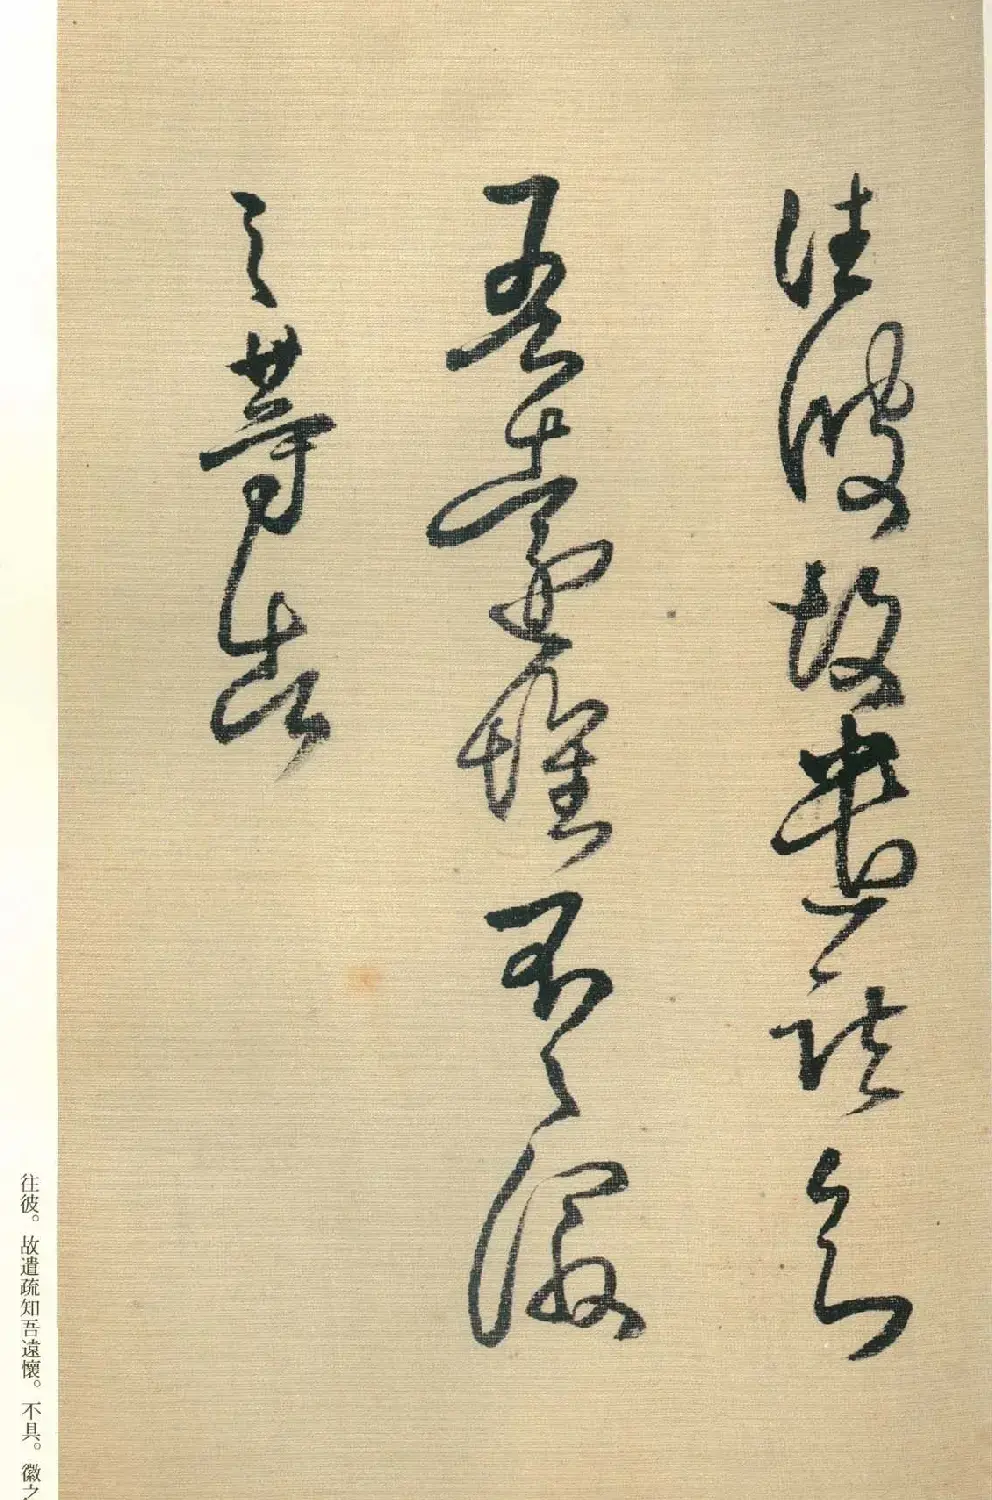 往彼故遣疏知
吾遠懷不具徽
之等書
往彼。故遣疏知吾遠懷。不具。徽之